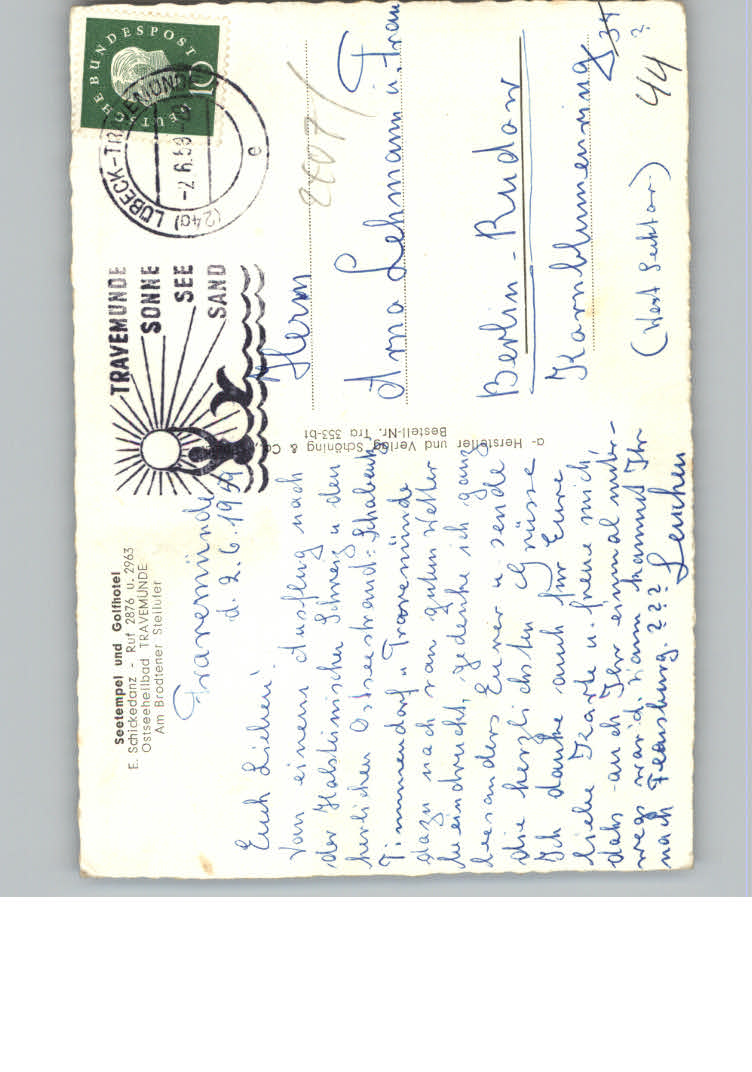 Seetempel und Golfhotel
E. Schickedanz - Ruf 2876 u. 2963
Ostseeheilbad TRAVEMÜNDE
Am Brodtener Steilufer
Travemünde
d. 2.6.1959
Euch Lieben!
Von einem Ausflug nach
der Holsteinischen Schweiz u. den
herlichen Ostseestrand:
Timmendorf u. Travemünde
dazu noch von guten Wetter
beeindruckt, gedenke ich ganz
besonders Eurer u. sende
die herzlichsten Grüsse
Ich danke auch für Eure
liebe Karte u. freue mich,
dahs auch Ihr einmal unter-
wegs war'd. Wann kommt Ihr
nach Flensburg. ???
Lenchen
a- Hersteller und Verlag Schöning & Co.,
Bestell-Nr. Tra 353-bt
TRAVEMÜNDE
SONNE
SEE
SAND
(24a) LÜBECK-TRAVEMÜNDE
-2.6.59
e
DEUTSCHE BUNDESPOST
10
Herrn
Arno Lehmann u. Frau
Berlin - Rudow
Kornblumenring 34
44 ?
(West Sektor)